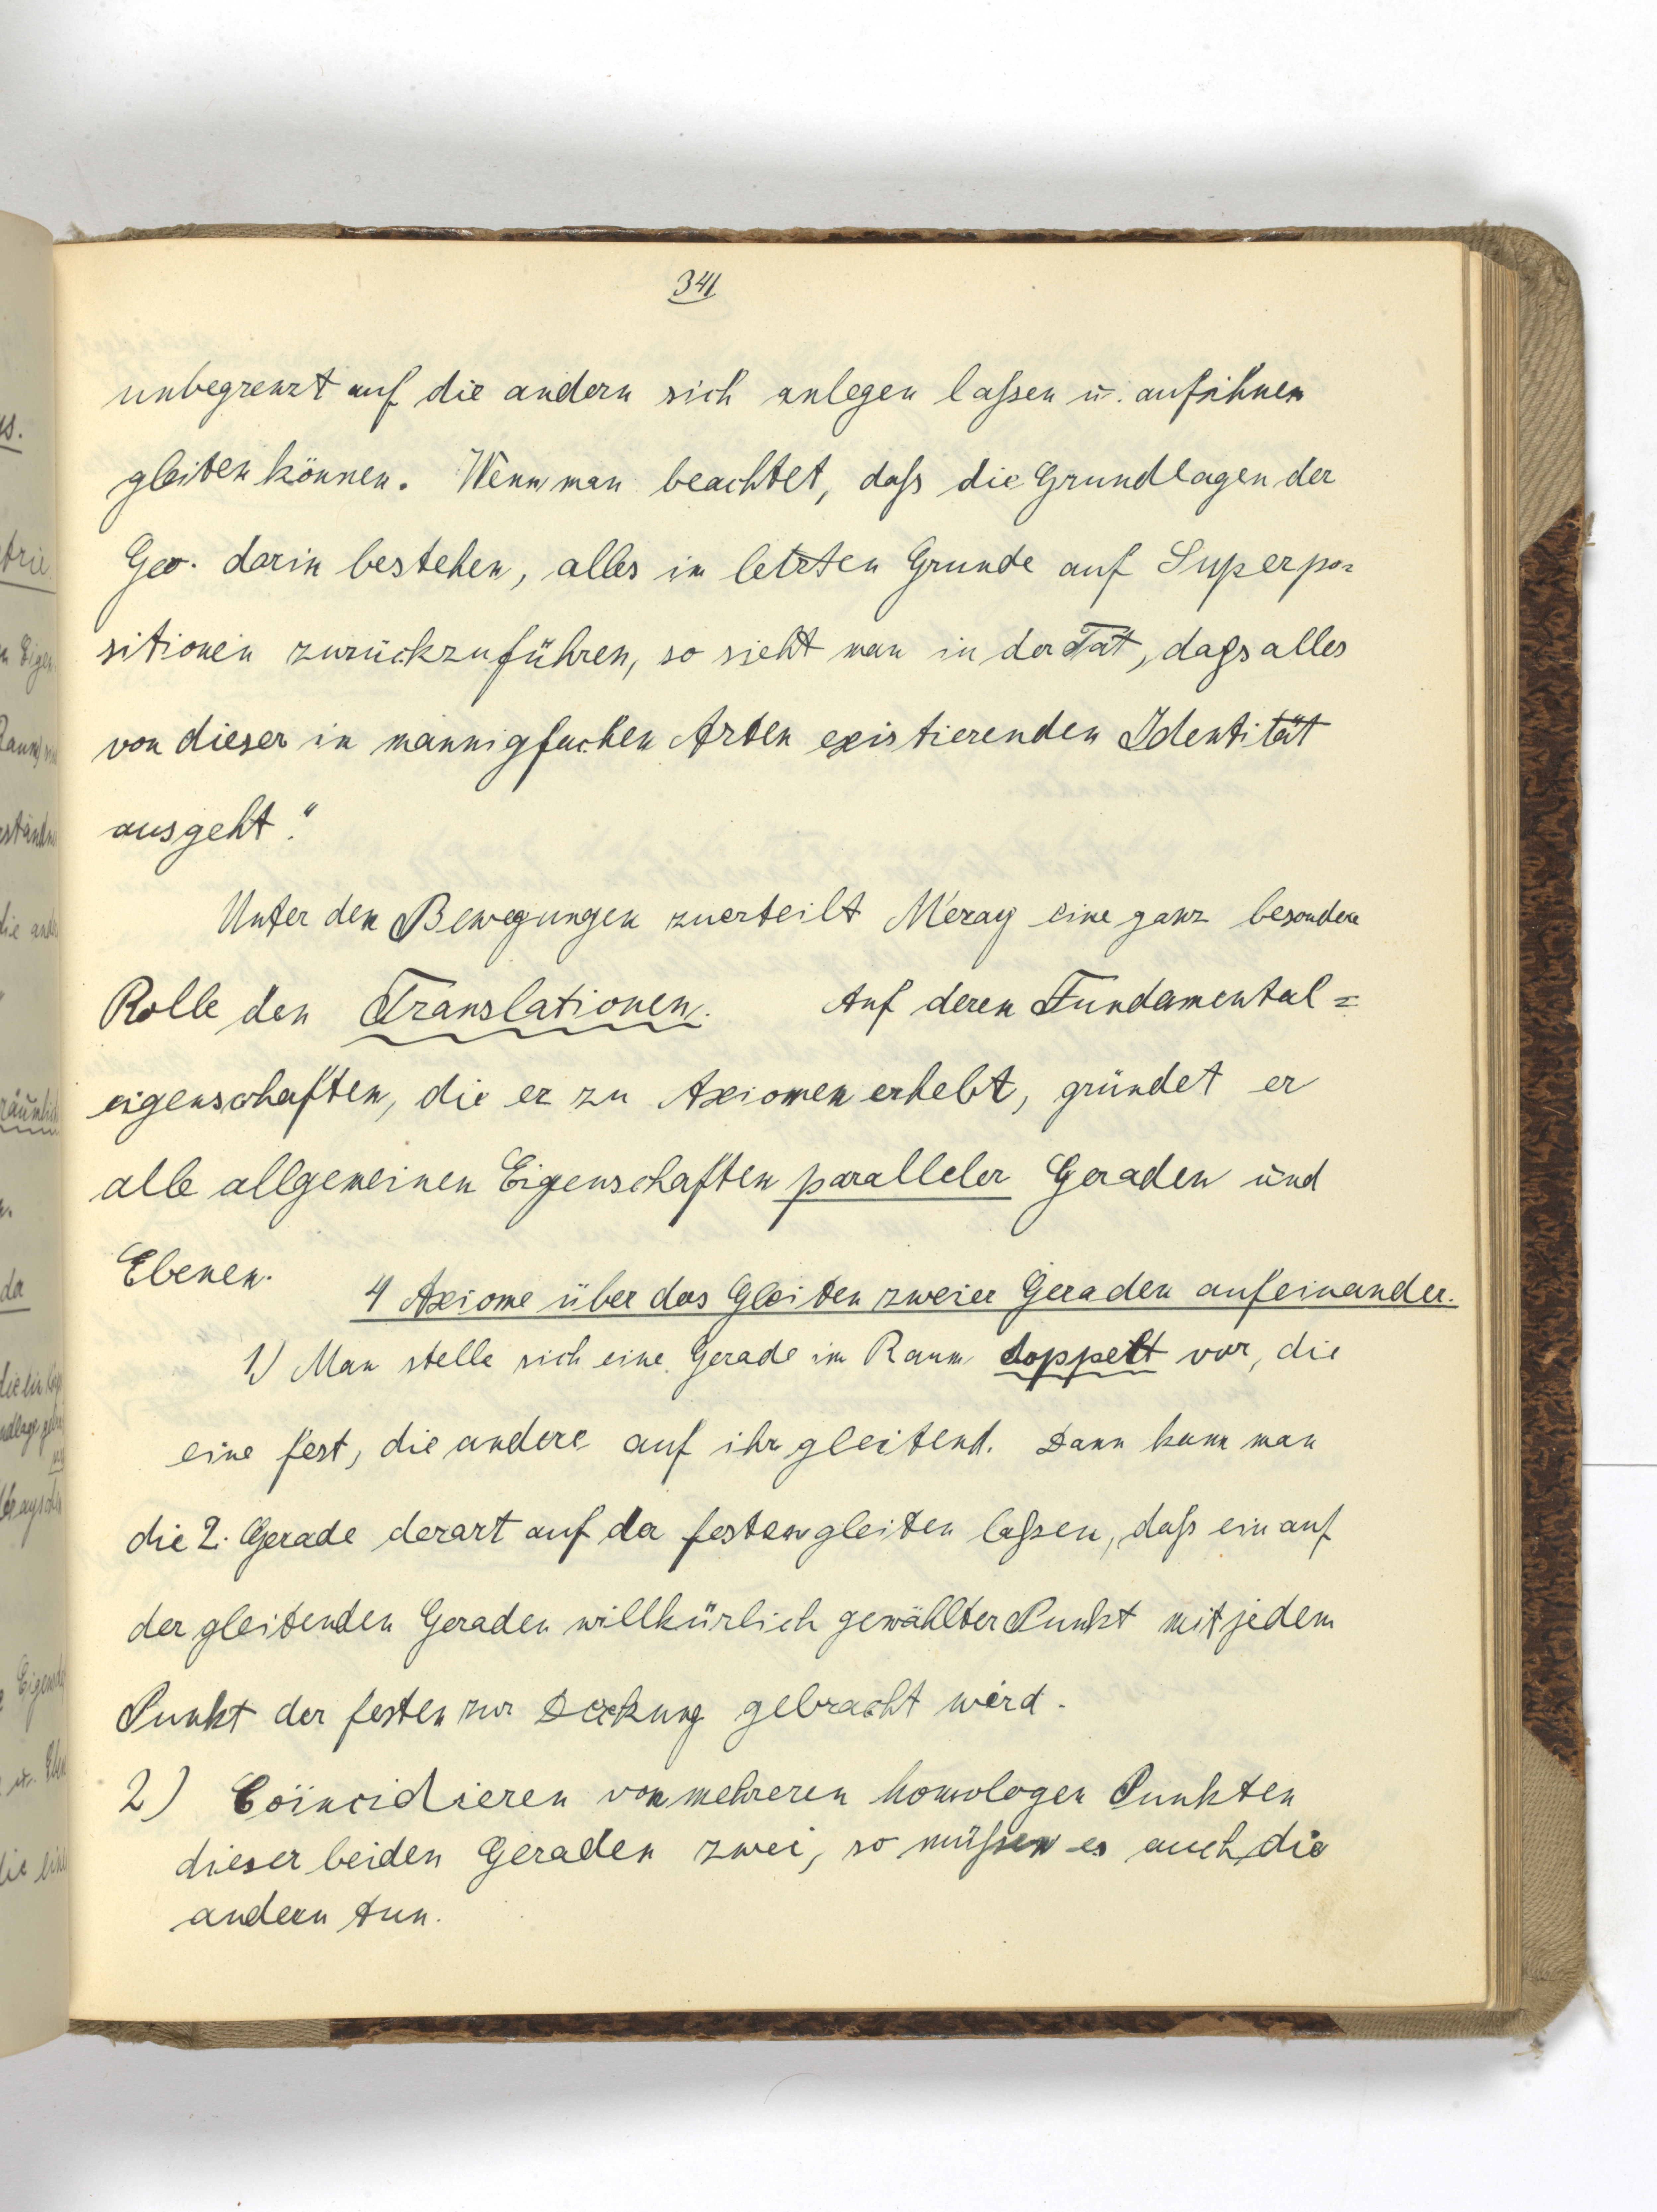 341
unbegrenzt auf die andern sich anlegen laſsen u. auf ihnen
gleiten können. Wenn man beachtet, daſs die Grundlagen der
Geo. darin bestehen, alles im letzten Grunde auf Superpo=
sitionen zurückzuführen, so sieht man in der Tat, daſs alles
von dieser in mannigfachen Arten existierenden Identität
ausgeht."
Unter den Bewegungen zuerteilt Méray eine ganz besondere
Rolle den Translationen. Auf deren Fundamental=
eigenschaften, die er zu Axiomen erhebt, gründet er
alle allgemeinen Eigenschaften paralleler Geraden und
Ebenen.
4 Axiome über das Gleiten zweier Geraden aufeinander.
1) Man stelle sich eine Gerade im Raum doppelt vor, die
eine fest, die andere auf ihr gleitend. Dann kann man
die 2. Gerade derart auf der festen gleiten laſsen, daſs ein auf
der gleitenden Geraden willkürlich gewählter Punkt mit jedem
Punkt der festen zur Deckung gebracht wird.
2) Coïncidieren von mehreren homologen Punkten
dieser beiden Geraden zwei, so müſsen es auch die
andern tun.